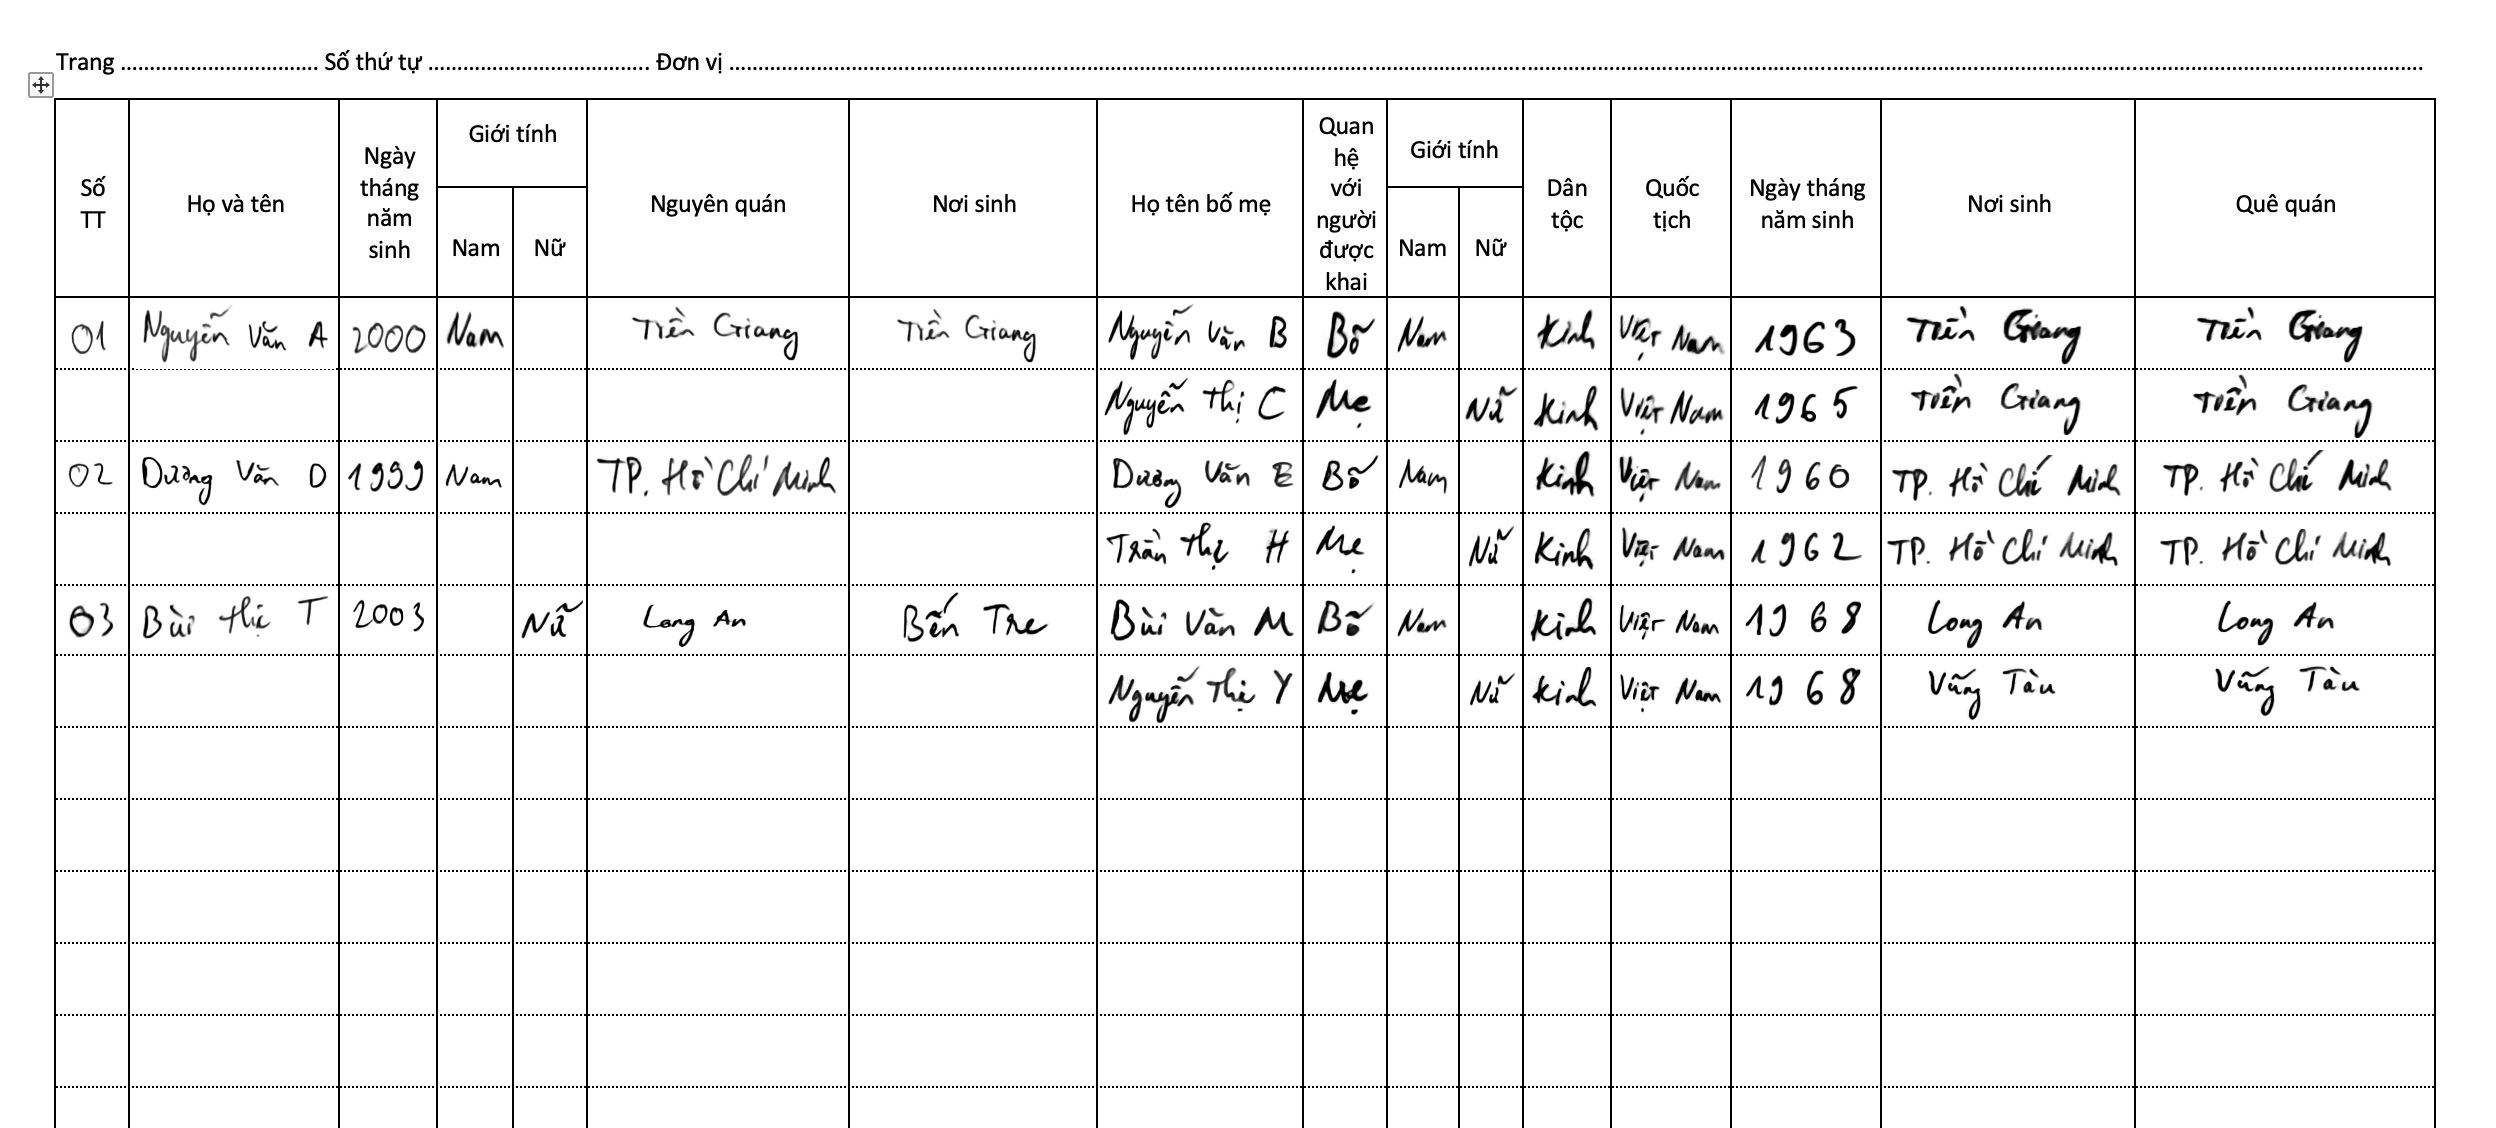 Trang ................................. Số thứ tự ..................................... Đơn vị ...............................................................
Số TT | Họ và tên | Ngày tháng năm sinh | Giới tính | Nguyên quán | Nơi sinh | Họ tên bố mẹ | Quan hệ với người được khai | Giới tính | Dân tộc | Quốc tịch | Ngày tháng năm sinh | Nơi sinh | Quê quán
Nam | Nữ | Nam | Nữ
01 | Nguyễn Văn A | 2000 | Nam | | Tiền Giang | Tiền Giang | Nguyễn Văn B | Bố | Nam | | Kinh | Việt Nam | 1963 | Tiền Giang | Tiền Giang
Nguyễn Thị C | Mẹ | | Nữ | Kinh | Việt Nam | 1965 | Tiền Giang | Tiền Giang
02 | Dương Văn D | 1999 | Nam | | TP. Hồ Chí Minh | | Dương Văn E | Bố | Nam | | Kinh | Việt Nam | 1960 | TP. Hồ Chí Minh | TP. Hồ Chí Minh
Trần Thị H | Mẹ | | Nữ | Kinh | Việt Nam | 1962 | TP. Hồ Chí Minh | TP. Hồ Chí Minh
03 | Bùi Thị T | 2003 | | Nữ | Long An | Bến Tre | Bùi Văn M | Bố | Nam | | Kinh | Việt Nam | 1968 | Long An | Long An
Nguyễn Thị Y | Mẹ | | Nữ | Kinh | Việt Nam | 1968 | Vũng Tàu | Vũng Tàu